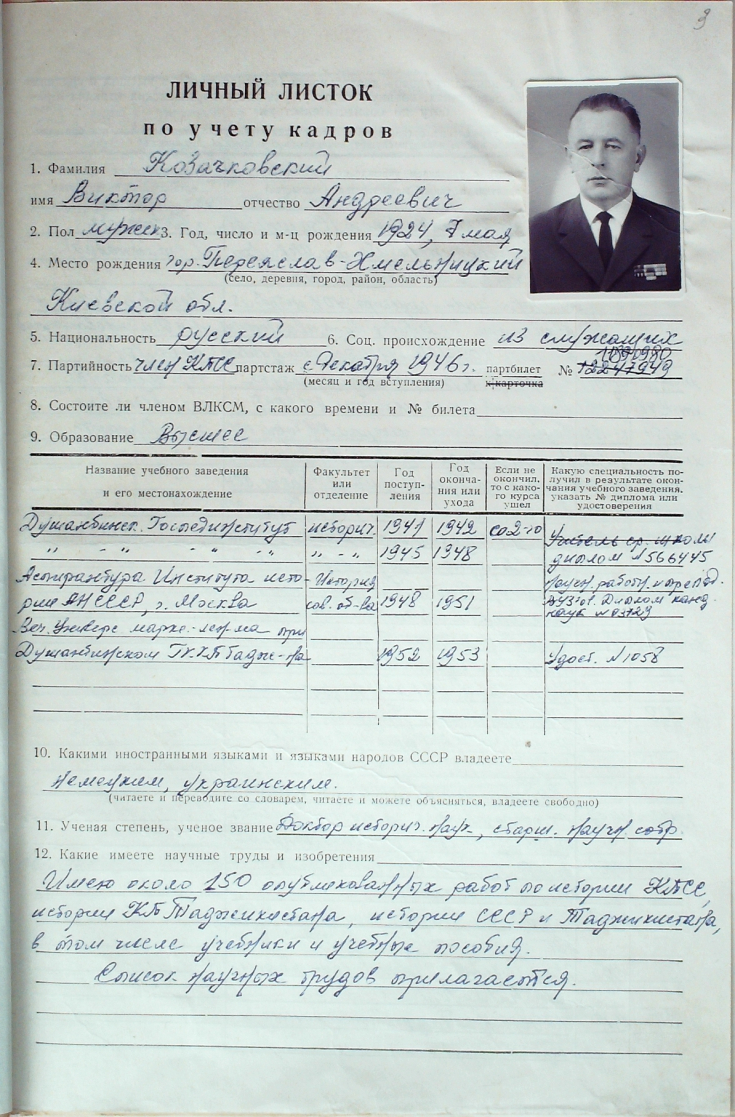 9
ЛИЧНЫЙ ЛИСТОК
по учету кадров
1. Фамилия Козачковский
имя Виктор отчество Андреевич
2. Пол мужск 3. Год, число и м-ц рождения 1924, 7 мая
4. Место рождения гор. Переяслав-Хмельницкий
(село, деревня, город, район, область)
Киевской обл.
5. Национальность русский 6. Соц. происхождение из служащих
7. Партийность член КПСС партстаж с декабря 1946 г. партбилет № 12247949
(месяц и год вступления) к.карточка
8. Состоите ли членом ВЛКСМ, с какого времени и № билета
9. Образование Высшее
Название учебного заведения и его местонахождение
Факультет или отделение
Год поступления
Год окончания или ухода
Если не окончил, то с какого курса ушел
Какую специальность получил в результате окончания учебного заведения, указать № диплома или удостоверения
Душанбинск. Госпединститут историч. 1941 1942 со 2-го Учитель ср. школы
" - " " " " " - " 1945 1948 диплом № 566445
Аспирантура Института исто- История научн. работн. и препод.
рии АН СССР, г. Москва сов. об-ва 1948 1951 Диплом канд.
наук № 03729
Веч. Универс маркс.-лен-ма при
Душанбинском ГК КП Тадж-на 1952 1953 Удост. № 1058
10. Какими иностранными языками и языками народов СССР владеете
немецким, украинским.
(читаете и переводите со словарем, читаете и можете объясняться, владеете свободно)
11. Ученая степень, ученое звание Доктор историч. наук, старш. научн. сотр.
12. Какие имеете научные труды и изобретения
Имею около 150 опубликованных работ по истории КПСС,
истории КП Таджикистана, истории СССР и Таджикистана,
в том числе учебники и учебные пособия.
Список научных трудов прилагается.